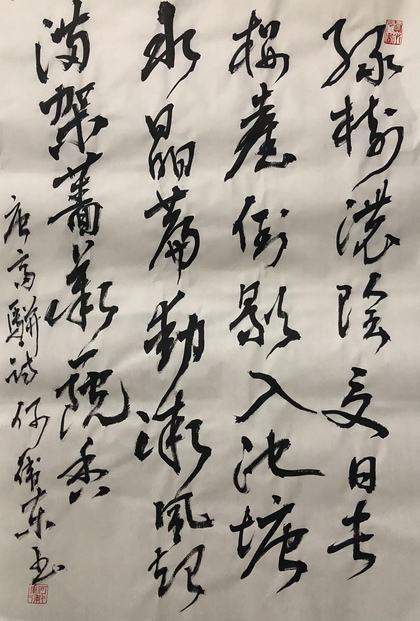 綠樹濃陰夏日長
樓臺倒影入池塘
水晶簾動微風起
滿架薔薇一院香
唐高駢詩 何衛東书